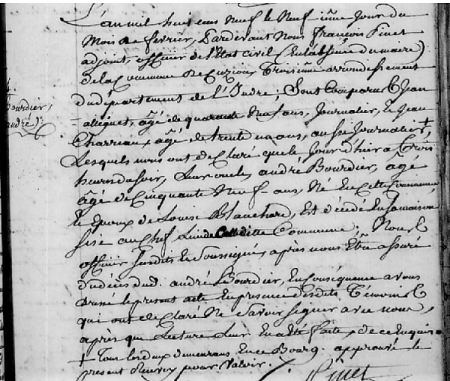 L'an mil huit cens neuf le neuf ième jour du
mois de fevrier, Pardevant Nous françois Pinet
adjoint, officier de l'état civil
de la Commune de Cuzion Troisième arrondissement
du département de l'Indre; Sont Comparus Jean
âgé de quarante neuf ans, journalier, et Jean
Charreau, âgé de trente un ans, aussi journalier +
Lesquels nous ont déclaré que le jour d'hier à trois
heures du soir, andré Bourdier, âgé
âgé de Cinquante neuf ans, Né en Cette Commune
de Louise Blanchard, Est décédé En sa maison
sise au Chef Lieu de Cadditte Commune; Nous
officier Susdit Soussignés après nous être assuré
du décès dud. andré Bourdier, En Conséquence avons
dressé le présent acte En présence desdits témoins
qui ont déclaré Ne Savoir signer avec nous,
après que Lecture Leur En a été faite de ce Enquis
+ Tous les deux demeurans En ce Bourg. approuvé le
présent Renvoy pour valoir.
Pinet
Bourdier,
andré